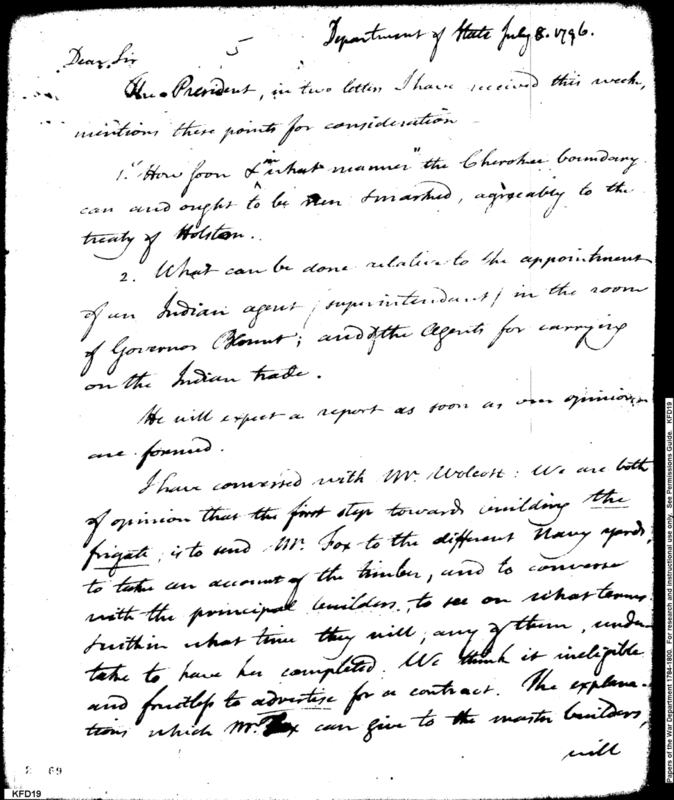 Department of State July 8. 1796.
5
Dear Sir
The President, in two letters I have received this week,
mentions these points for consideration
1st How soon & in what manner the Cherokee boundary
can and ought to be run & marked, agreeably to the
treaty of Holston.
2. What can be done relative to the appointment
of an Indian agent (superintendant) in the room
of Governor Blount; and of the Agents for carrying
on the Indian trade.
He will expect a report as soon as our opinions
are formed.
I have conversed with Mr. Wolcott: We are both
of opinion that the first step towards building the
frigate, is to send Mr. Fox to the different Navy yards,
to take an account of the timber, and to converse
with the principal builders, to see on what terms
& within what time they will, any of them, under
take to have her completed. We think it ineligible
and fruitless to advertise for a contract. The explana-
tions which Mr. Fox can give to the master builders,
will
2 69
KFD19
Papers of the War Department 1784-1800. For research and instructional use only. See Permissions Guide. KFD19